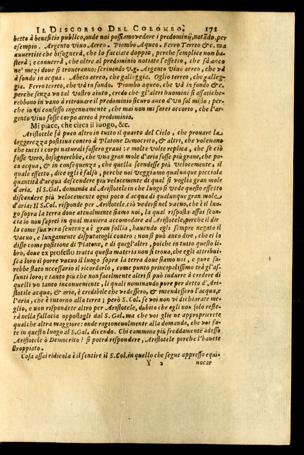 IL DISCORSO DEL COLOMBO. 171
betto à beneficio publico, onde noi possiamo vedere i predominij, natãdo, per
esempio. Argento Vino Aereo. Piombo Aqueo. Ferro Terreo &c. ma
auuertite che bisognerà, che lo facciate doppio, perche semplice non ba-
sterà; e conuerrà, che oltre al predominio notate l'effetto, che
ne' mezi doue si trouerano; scriuendo Argento Viuo aereo, che và
al fondo in acqua. Abeto aereo, che galleggia. Oglio terreo, che galleg-
gia. Ferro terreo, che và in fondo. Piombo aqueo, che và in fondo &c.
perche senza vn tal vostro aiuto, credo che gl'altri huomini s'affatiche-
rebbono in vano à ritrouare il predominio sicuro anco d'vn sol misto; per-
che io vi confesso ingenuamente, che mai non mi sarei accorto, che l'ar-
gento Viuo fusse corpo aereo à predominio.
Mi piace, che circa il luogo, &c.
Aristotele fà poco altro in tutto il quarto del Cielo, che prouare la
leggerezza positiua contro à Platone Democrito, & altri, che voleuano
che tutti i corpi naturali fussero graui: e molte volte replica, che se ciò
fusse vero, bisognerebbe, che vna gran mole d'aria fusse più graue, che po-
ca acqua, & in consequenza, che quella scendesse più velocemente, il
quale effetto, dice egli è falso, perche noi veggiamo qualunque picciola
quantità d'acqua descendere più velocemente di qual si voglia gran mole
d'aria. Il S.Gal. domanda ad Aristotele in che luogo si vede questo effetto
discendere più velocemente ogni poca d'acqua di qualunque gran mole d'
aria; Il S.Col. risponde per Aristotele ciò vedersi nel vacuo, che è il luo-
go sopra la terra doue attualmente siamo noi, la qual risposta assai scon-
cia io non saprei in qual maniera accomodare ad Aristotele, perche il dir-
la come sua vera sentenza è gran fallo, hauendo egli sempre negato il
vacuo, e lungamente disputatogli contro: non si può anco dire, che ei la
disse come positione di Platone, e di quegl'altri, poiche in tutto questo li-
bro, doue ex professo tratta questa materia non si troua, che egli attribui-
sca loro il porre vacuo il luogo sopra la terra doue siamo noi, e pure sa-
rebbe stato necessario il ricordarlo, come punto principalissimo trà gl'as-
sunti loro; e tanto più che non facilmente altri si può indurre à credere di
quelli vn tanto inconueniente, li quali nominando pure per detto d'Ari-
stotele acqua, & aria, è credibile che vedessero, & intendessero l'acqua, e
l'aria, che è intorno alla terra; però S.Col. se voi non vi dichiarate me-
glio, e non rispondete altro per Aristotele, dubito che egli non solo reste-
rà nella fallacia oppostagli dal S.Gal. ma che voi glie ne appropriate
qual che altra maggiore: onde ragioneuolmente alla domanda, che voi fa-
te in questo luogo al S.Gal. dicendo. Chi cammina più freddamente adesso
Aristotele ò Democrito? si potrà rispondere, Aristotele perche l'hauete
stroppiato.
Cosa assai ridicola è il sentire il S.Col. in quello che segue appresso equi-
Y 2 uocar